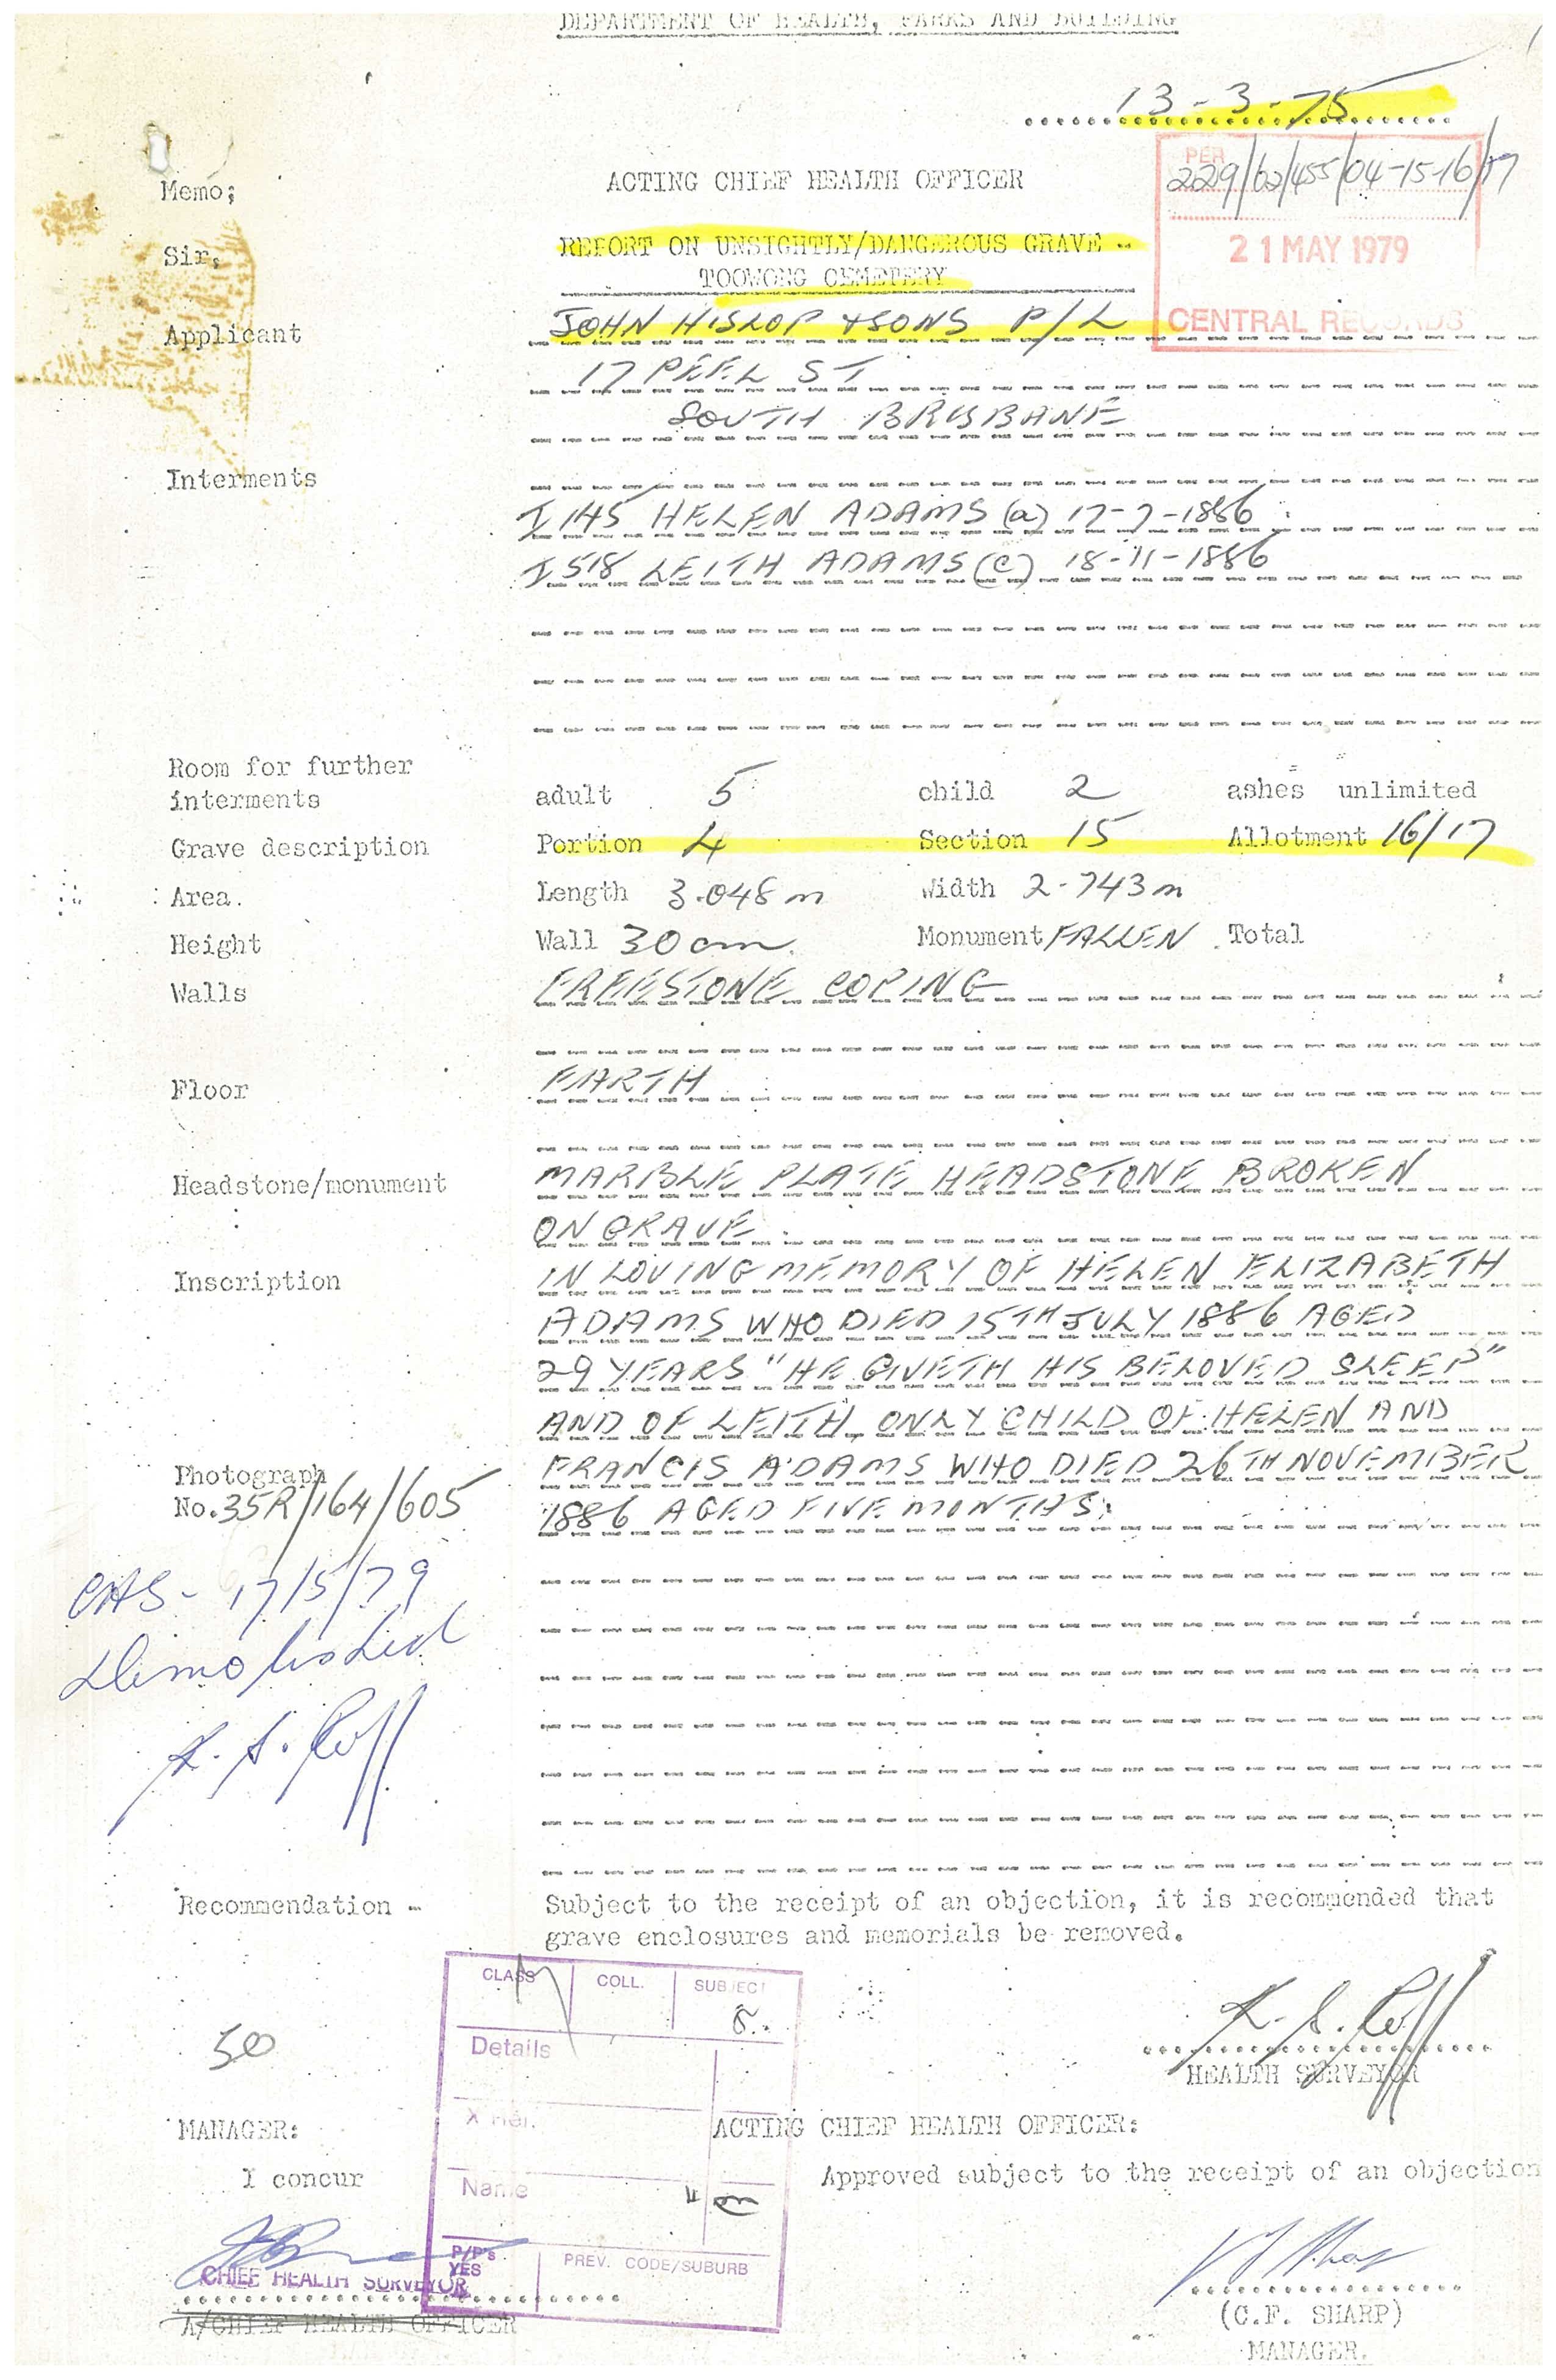 DEPARTMENT OF HEALTH, PARKS AND BUILDING
13-3-75
PER
229/62/455/04-15-16/17
21 MAY 1979
CENTRAL RECORDS
Memo;
ACTING CHIEF HEALTH OFFICER
Sir,
REPORT ON UNSIGHTLY/DANGEROUS GRAVE -
TOOWONG CEMETERY
Applicant JOHN HISLOP & SONS P/L
17 PEEL ST
SOUTH BRISBANE
Interments
I 145 HELEN ADAMS (a) 17-7-1886
I 518 LEITH ADAMS (C) 18-11-1886
Room for further
interments adult 5 child 2 ashes unlimited
Grave description Portion 4 Section 15 Allotment 16/17
Area. Length 3.048 m Width 2.743 m
Height Wall 30 cm. Monument FALLEN Total
Walls FREESTONE COPING
Floor EARTH
Headstone/monument MARBLE PLATE HEADSTONE BROKEN
ON GRAVE.
Inscription IN LOVING MEMORY OF HELEN ELIZABETH
ADAMS WHO DIED 15TH JULY 1886 AGED
29 YEARS "HE GIVETH HIS BELOVED SLEEP"
AND OF LEITH ONLY CHILD OF HELEN AND
FRANCIS ADAMS WHO DIED 26TH NOVEMBER
1886 AGED FIVE MONTHS.
Photograph
No. 35R/164/605
17/5/79
Demolished
Recommendation - Subject to the receipt of an objection, it is recommended that
grave enclosures and memorials be removed.
CLASS COLL. SUBJECT
Details
X Ref.
Name
P/P's
YES
PREV. CODE/SUBURB
50
HEALTH SURVEYOR
MANAGER:
I concur
CHIEF HEALTH SURVEYOR
A/CHIEF HEALTH OFFICER
ACTING CHIEF HEALTH OFFICER:
Approved subject to the receipt of an objection
(C.F. SHARP)
MANAGER.